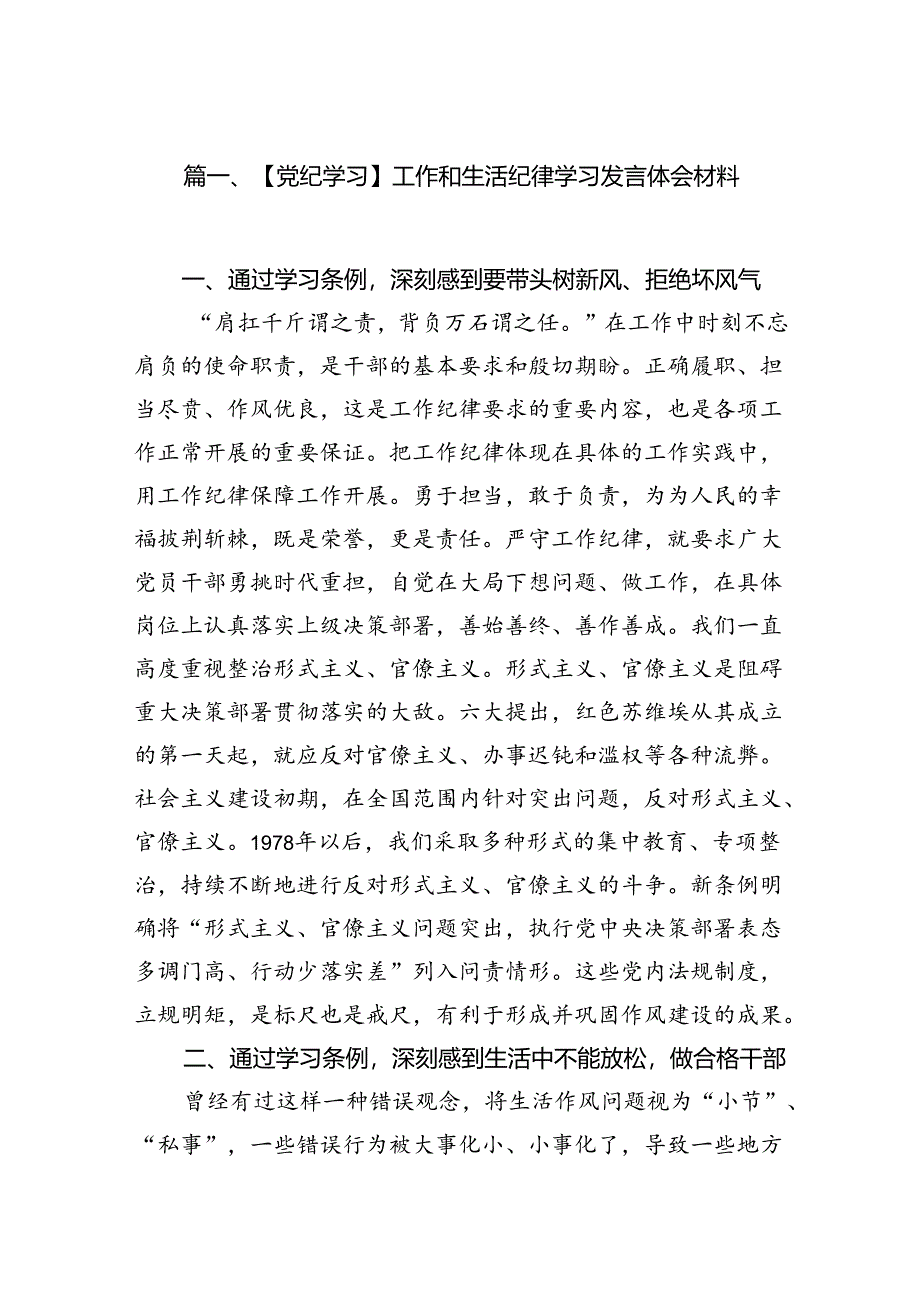 篇一、【党纪学习】工作和生活纪律学习发言体会材料
一、通过学习条例，深刻感到要带头树新风、拒绝坏风气
“肩扛千斤谓之责，背负万石谓之任。”在工作中时刻不忘
肩负的使命职责，是干部的基本要求和殷切期盼。正确履职、担
当尽贲、作风优良，这是工作纪律要求的重要内容，也是各项工
作正常开展的重要保证。把工作纪律体现在具体的工作实践中，
用工作纪律保障工作开展。勇于担当，敢于负责，为为人民的幸
福披荆斩棘，既是荣誉，更是责任。严守工作纪律，就要求广大
党员干部勇挑时代重担，自觉在大局下想问题、做工作，在具体
岗位上认真落实上级决策部署，善始善终、善作善成。我们一直
高度重视整治形式主义、官僚主义。形式主义、官僚主义是阻碍
重大决策部署贯彻落实的大敌。六大提出，红色苏维埃从其成立
的第一天起，就应反对官僚主义、办事迟钝和滥权等各种流弊。
社会主义建设初期，在全国范围内针对突出问题，反对形式主义、
官僚主义。1978年以后，我们采取多种形式的集中教育、专项整
治，持续不断地进行反对形式主义、官僚主义的斗争。新条例明
确将“形式主义、官僚主义问题突出，执行党中央决策部署表态
多调门高、行动少落实差”列入问责情形。这些党内法规制度，
立规明矩，是标尺也是戒尺，有利于形成并巩固作风建设的成果。
二、通过学习条例，深刻感到生活中不能放松，做合格干部
曾经有过这样一种错误观念，将生活作风问题视为“小节”、
“私事”，一些错误行为被大事化小、小事化了，导致一些地方